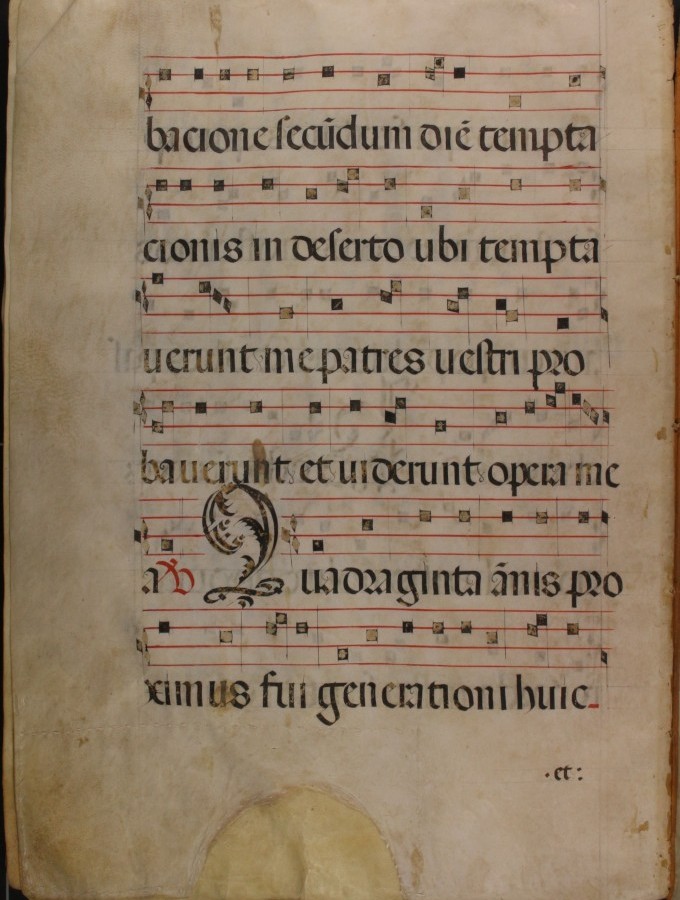 bacione secūdum diē tempta
cionis in deserto ubi tempta
uerunt me patres uestri pro
bauerunt et uiderunt opera me
a Quadraginta ānis pro
ximus fui generationi huic
·et: